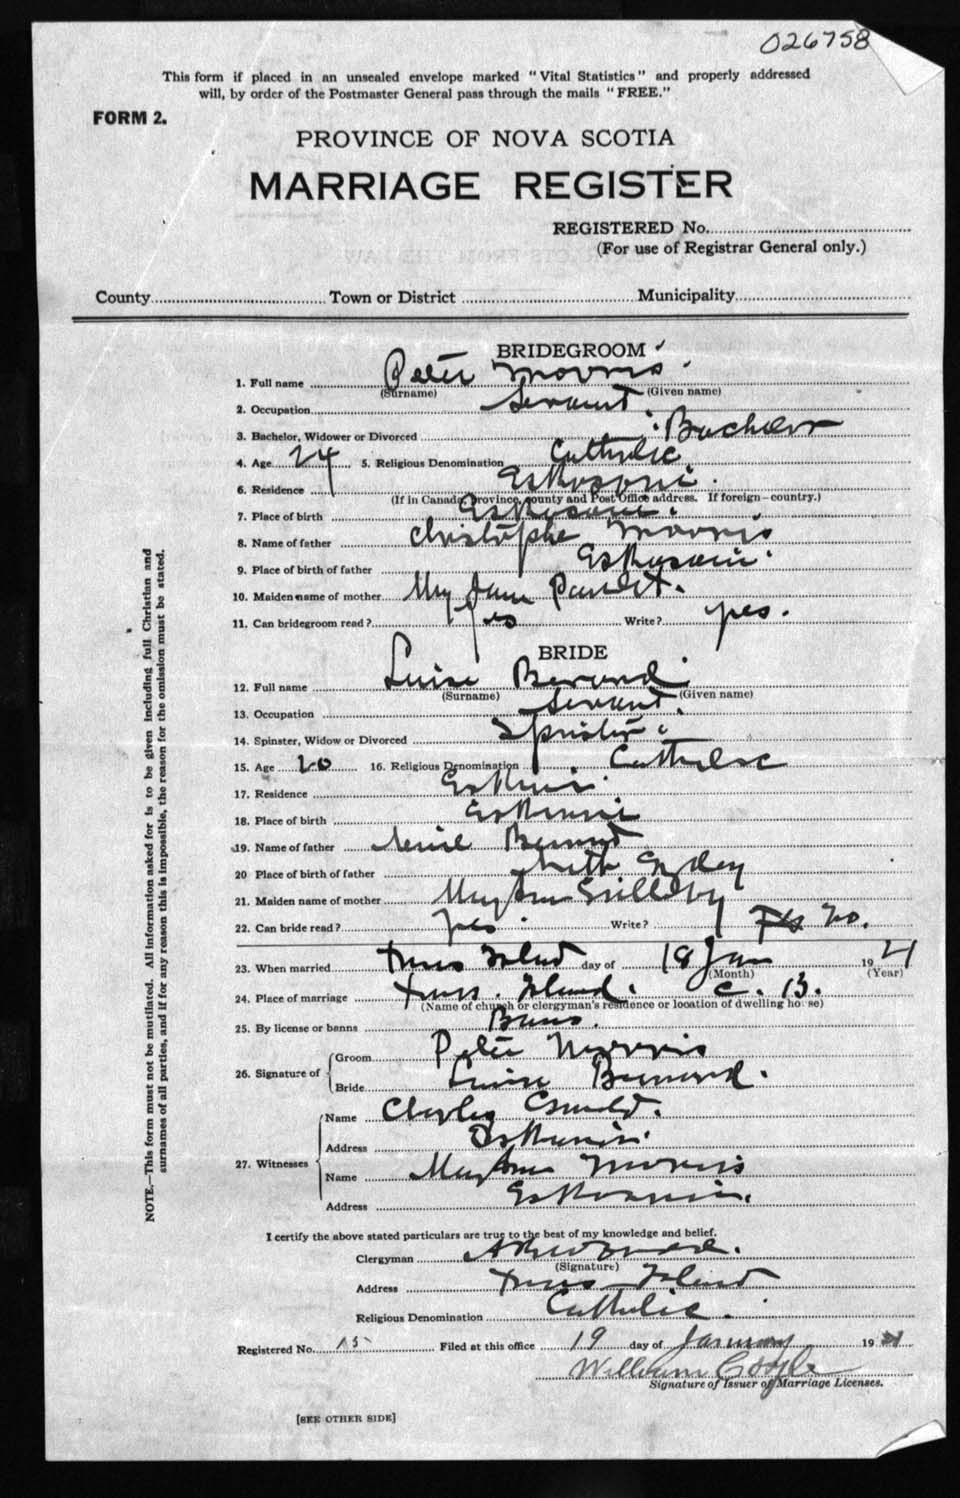 026758
This form if placed in an unsealed envelope marked "Vital Statistics" and properly addressed
will, by order of the Postmaster General pass through the mails "FREE."
FORM 2.
PROVINCE OF NOVA SCOTIA
MARRIAGE REGISTER
REGISTERED No.
(For use of Registrar General only.)
County Town or District Municipality
BRIDEGROOM
1. Full name Peter Morris
(Surname) (Given name)
2. Occupation Servant
3. Bachelor, Widower or Divorced Bachelor
4. Age 24 5. Religious Denomination Catholic
6. Residence Eskosoni
(If in Canada, province, county and Post Office address. If foreign—country.)
7. Place of birth Eskosoni
8. Name of father Christophe Morris
9. Place of birth of father Eskosoni
10. Maiden name of mother Mary Jane
11. Can bridegroom read? yes Write? yes.
BRIDE
12. Full name Luise Bernard
(Surname) (Given name)
13. Occupation Servant.
14. Spinster, Widow or Divorced Spinster
15. Age 20 16. Religious Denomination Catholic
17. Residence Eskasoni
18. Place of birth Eskasoni
19. Name of father Bernard
20 Place of birth of father North Sydney
21. Maiden name of mother Mary Ann
22. Can bride read? yes Write? Yes No.
23. When married Island day of 18 Jan 1921
(Month) (Year)
24. Place of marriage Island. C. B.
(Name of church or clergyman's residence or location of dwelling house)
25. By license or banns Banns.
26. Signature of Groom Peter Morris
Bride Luise Bernard.
27. Witnesses Name Charley
Address Eskasoni
Name Mary Ann Morris
Address Eskosoni.
I certify the above stated particulars are true to the best of my knowledge and belief.
Clergyman
(Signature)
Address Island
Religious Denomination Catholic.
Registered No. 15 Filed at this office 19 day of January 1921
William Coyle
Signature of Issuer of Marriage Licenses.
[SEE OTHER SIDE]
NOTE.—This form must not be mutilated. All information asked for is to be given including full Christian and
surnames of all parties, and if for any reason this is impossible, the reason for the omission must be stated.